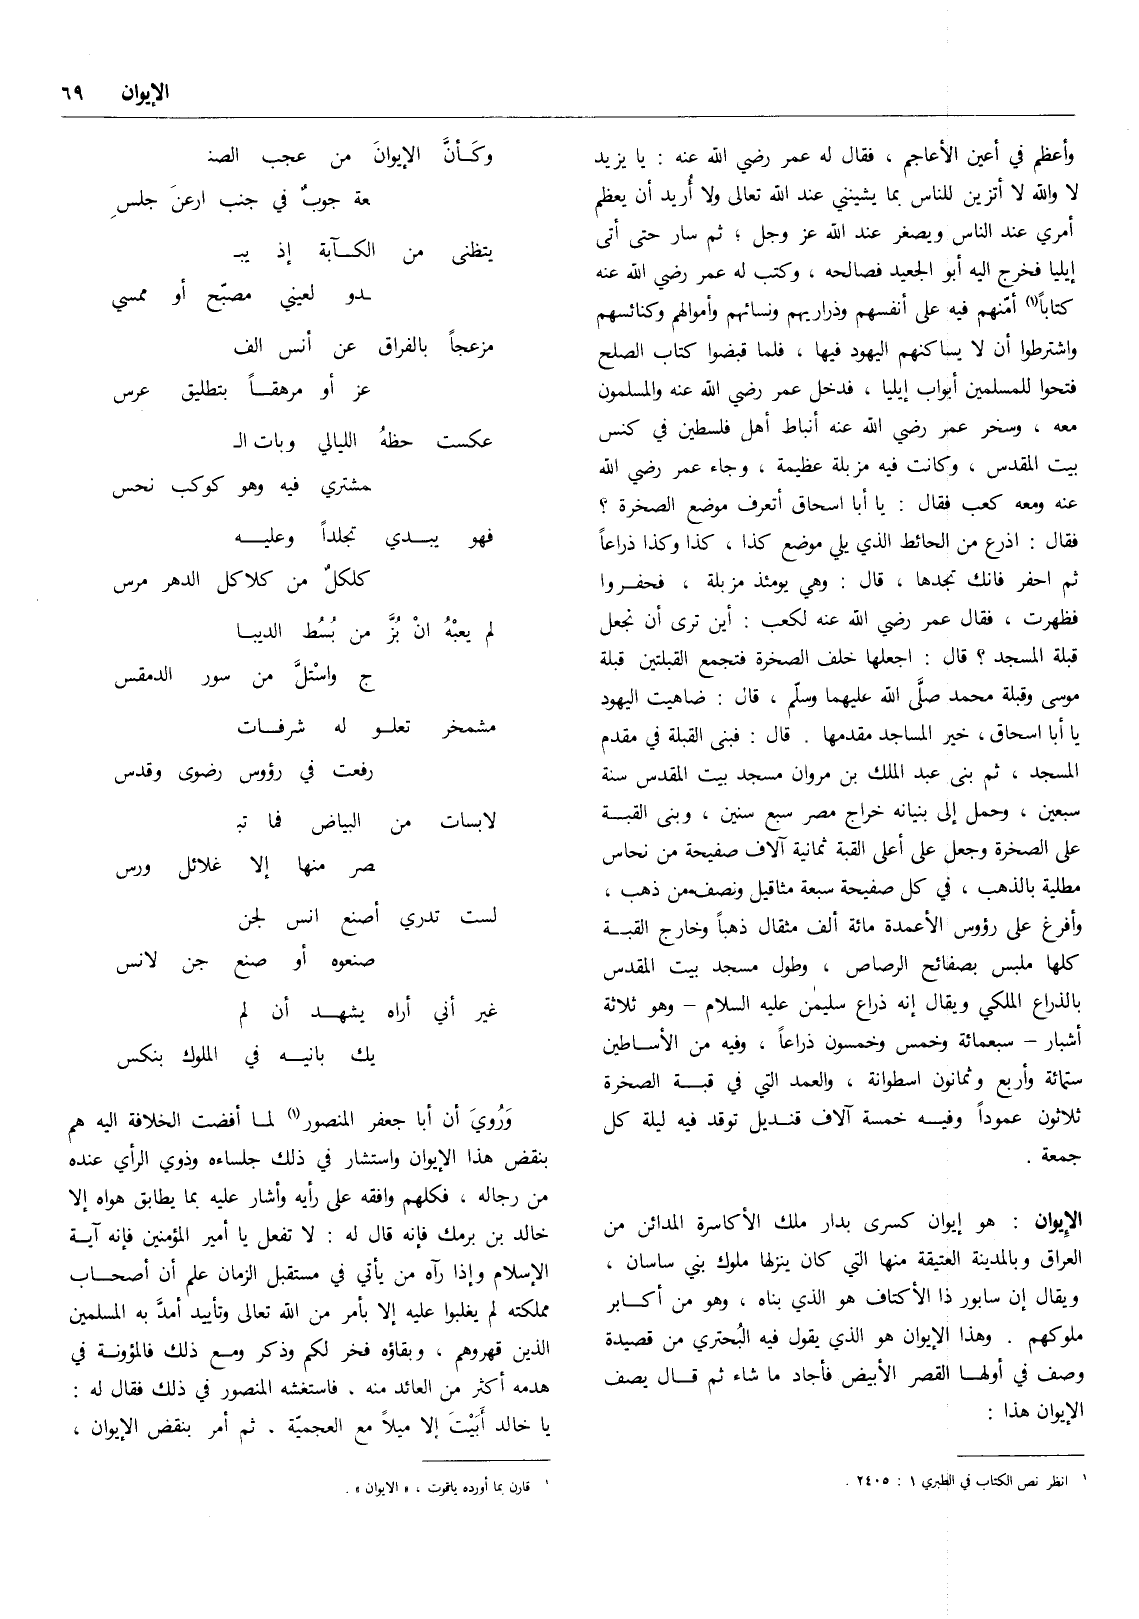 الإيوان ٦٩
وأعظم في أعين الأعاجم ، فقال له عمر رضي الله عنه : يا يزيد
لا والله لا أتزين للناس بما يشينني عند الله تعالى ولا أُريد أن يعظم
أمري عند الناس ويصغر عند الله عز وجل ؛ ثم سار حتى أتى
إيليا فخرج اليه أبو الجعيد فصالحه ، وكتب له عمر رضي الله عنه
كتاباً(١) أمّنهم فيه على أنفسهم وذراريهم ونسائهم وأموالهم وكنائسهم
واشترطوا أن لا يساكنهم اليهود فيها ، فلما قبضوا كتاب الصلح
فتحوا للمسلمين أبواب إيليا ، فدخل عمر رضي الله عنه والمسلمون
معه ، وسخر عمر رضي الله عنه أنباط أهل فلسطين في كنس
بيت المقدس ، وكانت فيه مزبلة عظيمة ، وجاء عمر رضي الله
عنه ومعه كعب فقال : يا أبا اسحاق أتعرف موضع الصخرة ؟
فقال : اذرع من الحائط الذي يلي موضع كذا ، كذا وكذا ذراعاً
ثم احفر فانك تجدها ، قال : وهي يومئذ مزبلة ، فحفروا
فظهرت ، فقال عمر رضي الله عنه لكعب : أين ترى أن نجعل
قبلة المسجد ؟ قال : اجعلها خلف الصخرة فتجمع القبلتين قبلة
موسى وقبلة محمد صلَّى الله عليهما وسلّم ، قال : ضاهيت اليهود
يا أبا اسحاق ، خير المساجد مقدمها . قال : فبنى القبلة في مقدم
المسجد ، ثم بنى عبد الملك بن مروان مسجد بيت المقدس سنة
سبعين ، وحمل إلى بنيانه خراج مصر سبع سنين ، وبنى القبة
على الصخرة وجعل على أعلى القبة ثمانية آلاف صفيحة من نحاس
مطلية بالذهب ، في كل صفيحة سبعة مثاقيل ونصف من ذهب ،
وأفرغ على رؤوس الأعمدة مائة ألف مثقال ذهباً وخارج القبة
كلها ملبس بصفائح الرصاص ، وطول مسجد بيت المقدس
بالذراع الملكي ويقال إنه ذراع سليمٰن عليه السلام – وهو ثلاثة
أشبار – سبعمائة وخمس وخمسون ذراعاً ، وفيه من الأساطين
ستمائة وأربع وثمانون اسطوانة ، والعمد التي في قبة الصخرة
ثلاثون عموداً وفيه خمسة آلاف قنديل توقد فيه ليلة كل
جمعة .
الإيوان : هو إيوان كسرى بدار ملك الأكاسرة المدائن من
العراق وبالمدينة العتيقة منها التي كان ينزلها ملوك بني ساسان ،
ويقال إن سابور ذا الأكتاف هو الذي بناه ، وهو من أكابر
ملوكهم . وهذا الإيوان هو الذي يقول فيه البُحتري من قصيدة
وصف في أولها القصر الأبيض فأجاد ما شاء ثم قال يصف
الإيوان هذا :
١ انظر نص الكتاب في الطبري ١ : ٢٤٠٥ .
وكَأنَّ الإيوانَ من عجب الصنـ
عة جوبٌ في جنب ارعنَ جلسِ
يتظنى من الكآبة إذ يبـ
ـدو لعيني مصبّح أو ممسي
مزعجاً بالفراق عن أنس الف
عز أو مرهقاً بتطليق عرس
عكست حظهُ الليالي وبات الـ
ـمشتري فيه وهو كوكب نحس
فهو يبدي تجلداً وعليه
كلكلٌ من كلاكل الدهر مرس
لم يعبْهُ انْ بُزَّ من بُسُط الديبا
ج واسْتلَّ من سور الدمقس
مشمخر تعلو له شرفات
رفعت في رؤوس رضوى وقدس
لابسات من البياض فما تبـ
ـصر منها إلا غلائل ورس
لست تدري أصنع انس لجن
صنعوه أو صنع جن لانس
غير أني أراه يشهد أن لم
يك بانيه في الملوك بنكس
وَرُويَ أن أبا جعفر المنصور(١) لما أفضت الخلافة اليه هم
بنقض هذا الإيوان واستشار في ذلك جلساءه وذوي الرأي عنده
من رجاله ، فكلهم وافقه على رأيه وأشار عليه بما يطابق هواه إلا
خالد بن برمك فإنه قال له : لا تفعل يا أمير المؤمنين فإنه آية
الإسلام وإذا رآه من يأتي في مستقبل الزمان علم أن أصحاب
مملكته لم يغلبوا عليه إلا بأمر من الله تعالى وتأييد أمدَّ به المسلمين
الذين قهروهم ، وبقاؤه فخر لكم وذكر ومع ذلك فالمؤونة في
هدمه أكثر من العائد منه . فاستغشه المنصور في ذلك فقال له :
يا خالد أَبَيْتَ إلا ميلاً مع العجميّة . ثم أمر بنقض الإيوان ،
١ قارن بما أورده ياقوت ، « الايوان » .